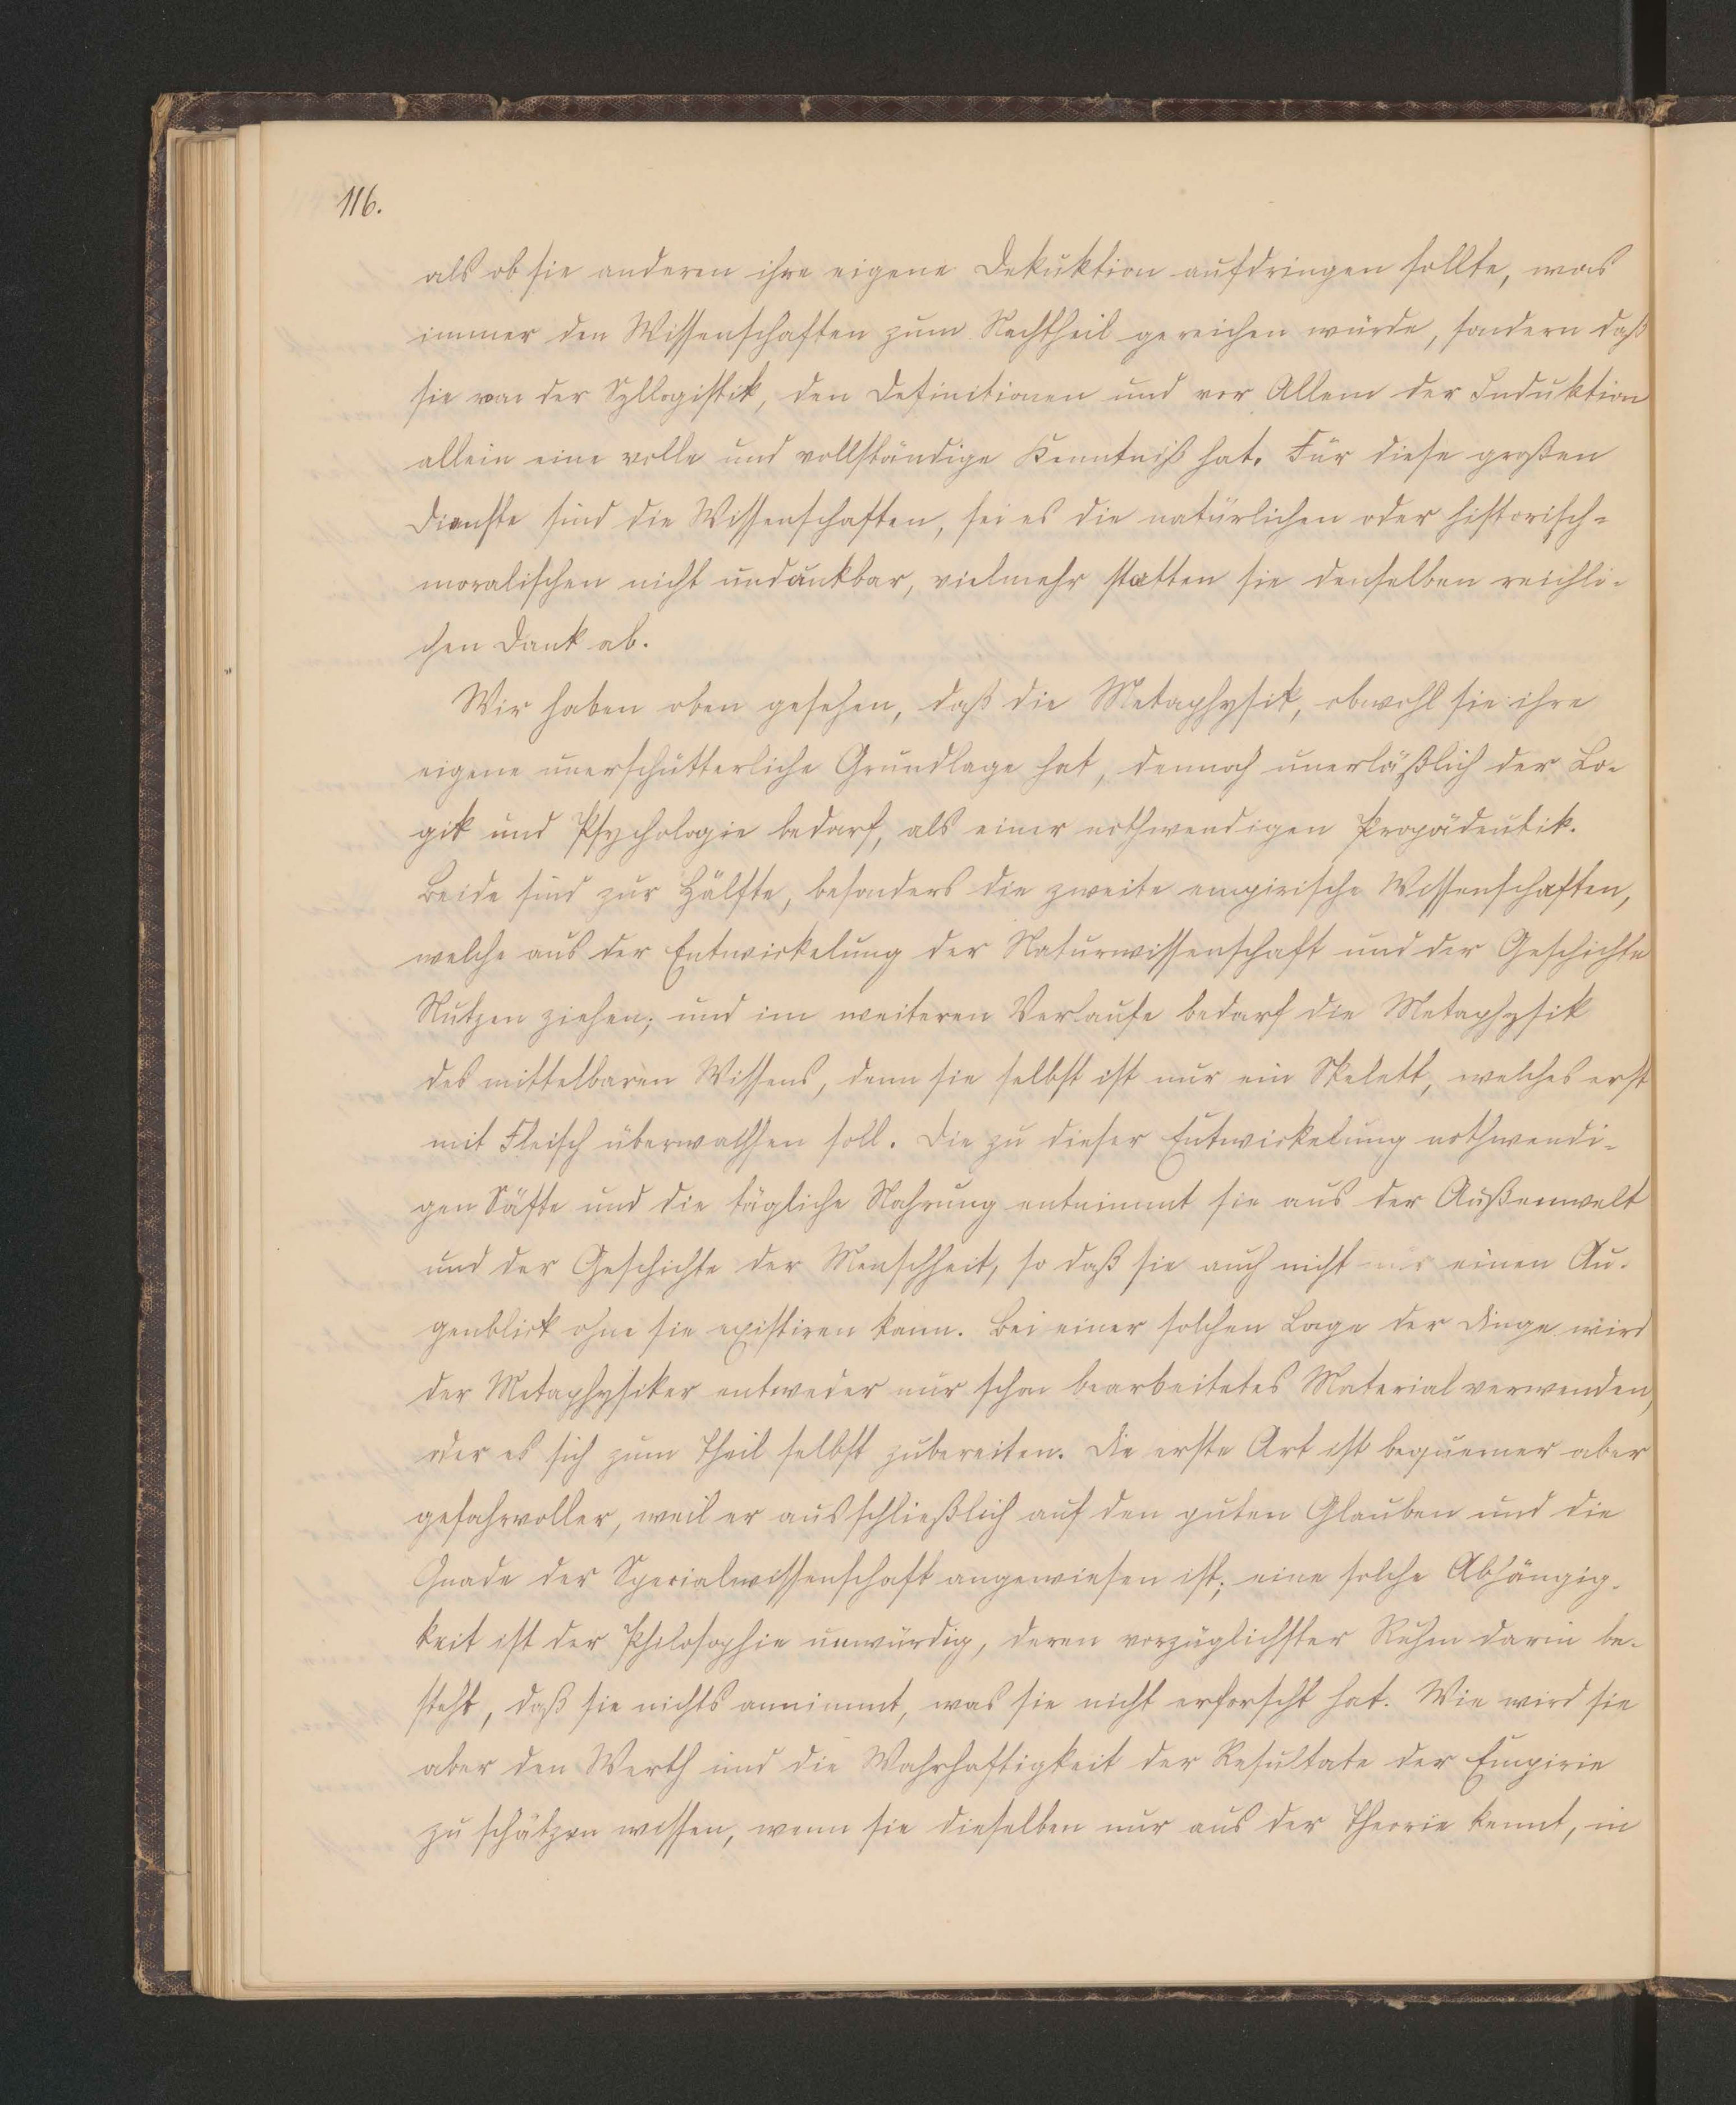 116.
als ob sie anderen ihre eigene Dekuktion aufdringen sollte, was
immer den Wissenschaften zum Nachtheil gereichen würde, sondern daß
sie von der Syllogistik, den Definitionen und vor Allem der Induktion
allein eine volle und vollständige Kenntniß hat. Für diese großen
Dienste sind die Wissenschaften, sei es die natürlichen oder historisch-
moralischen nicht undankbar, vielmehr statten sie denselben reichli-
chen Dank ab.
Wir haben oben gesehen, daß die Metaphysik, obwohl sie ihre
eigene unerschütterliche Grundlage hat, dennoch unerläßlich der Lo-
gik und Psychologie bedarf, als einer nothwendigen Propädeutik.
Beide sind zur Hälfte, besonders die zweite empirische Wissenschaften,
welche aus der Entwickelung der Naturwissenschaft und der Geschichte
Nutzen ziehen; und im weiteren Verlaufe bedarf die Metaphysik
des mittelbaren Wissens, denn sie selbst ist nur ein Skelett, welches erst
mit Fleisch überwachsen soll. Die zu dieser Entwickelung nothwendi-
gen Säfte und die tägliche Nahrung entnimmt sie aus der Außenwelt
und der Geschichte der Menschheit, so daß sie auch nicht nur einen Au-
genblick ohne sie existiren kann. Bei einer solchen Lage der Dinge wird
der Metaphysiker entweder nur schon bearbeitetes Material verwenden,
oder es sich zum Theil selbst zubereiten. Die erste Art ist bequemer aber
gefahrvoller, weil er ausschließlich auf den guten Glauben und die
Gnade der Specialwissenschaft angewiesen ist; eine solche Abhängig-
keit ist der Philosophie unwürdig, deren vorzüglichster Ruhm darin be-
steht, daß sie nichts annimmt, was sie nicht erforscht hat. Wie wird sie
aber den Werth und die Wahrhaftigkeit der Resultate der Empirie
zu schätzen wissen, wenn sie dieselben nur aus der Theorie kennt, in